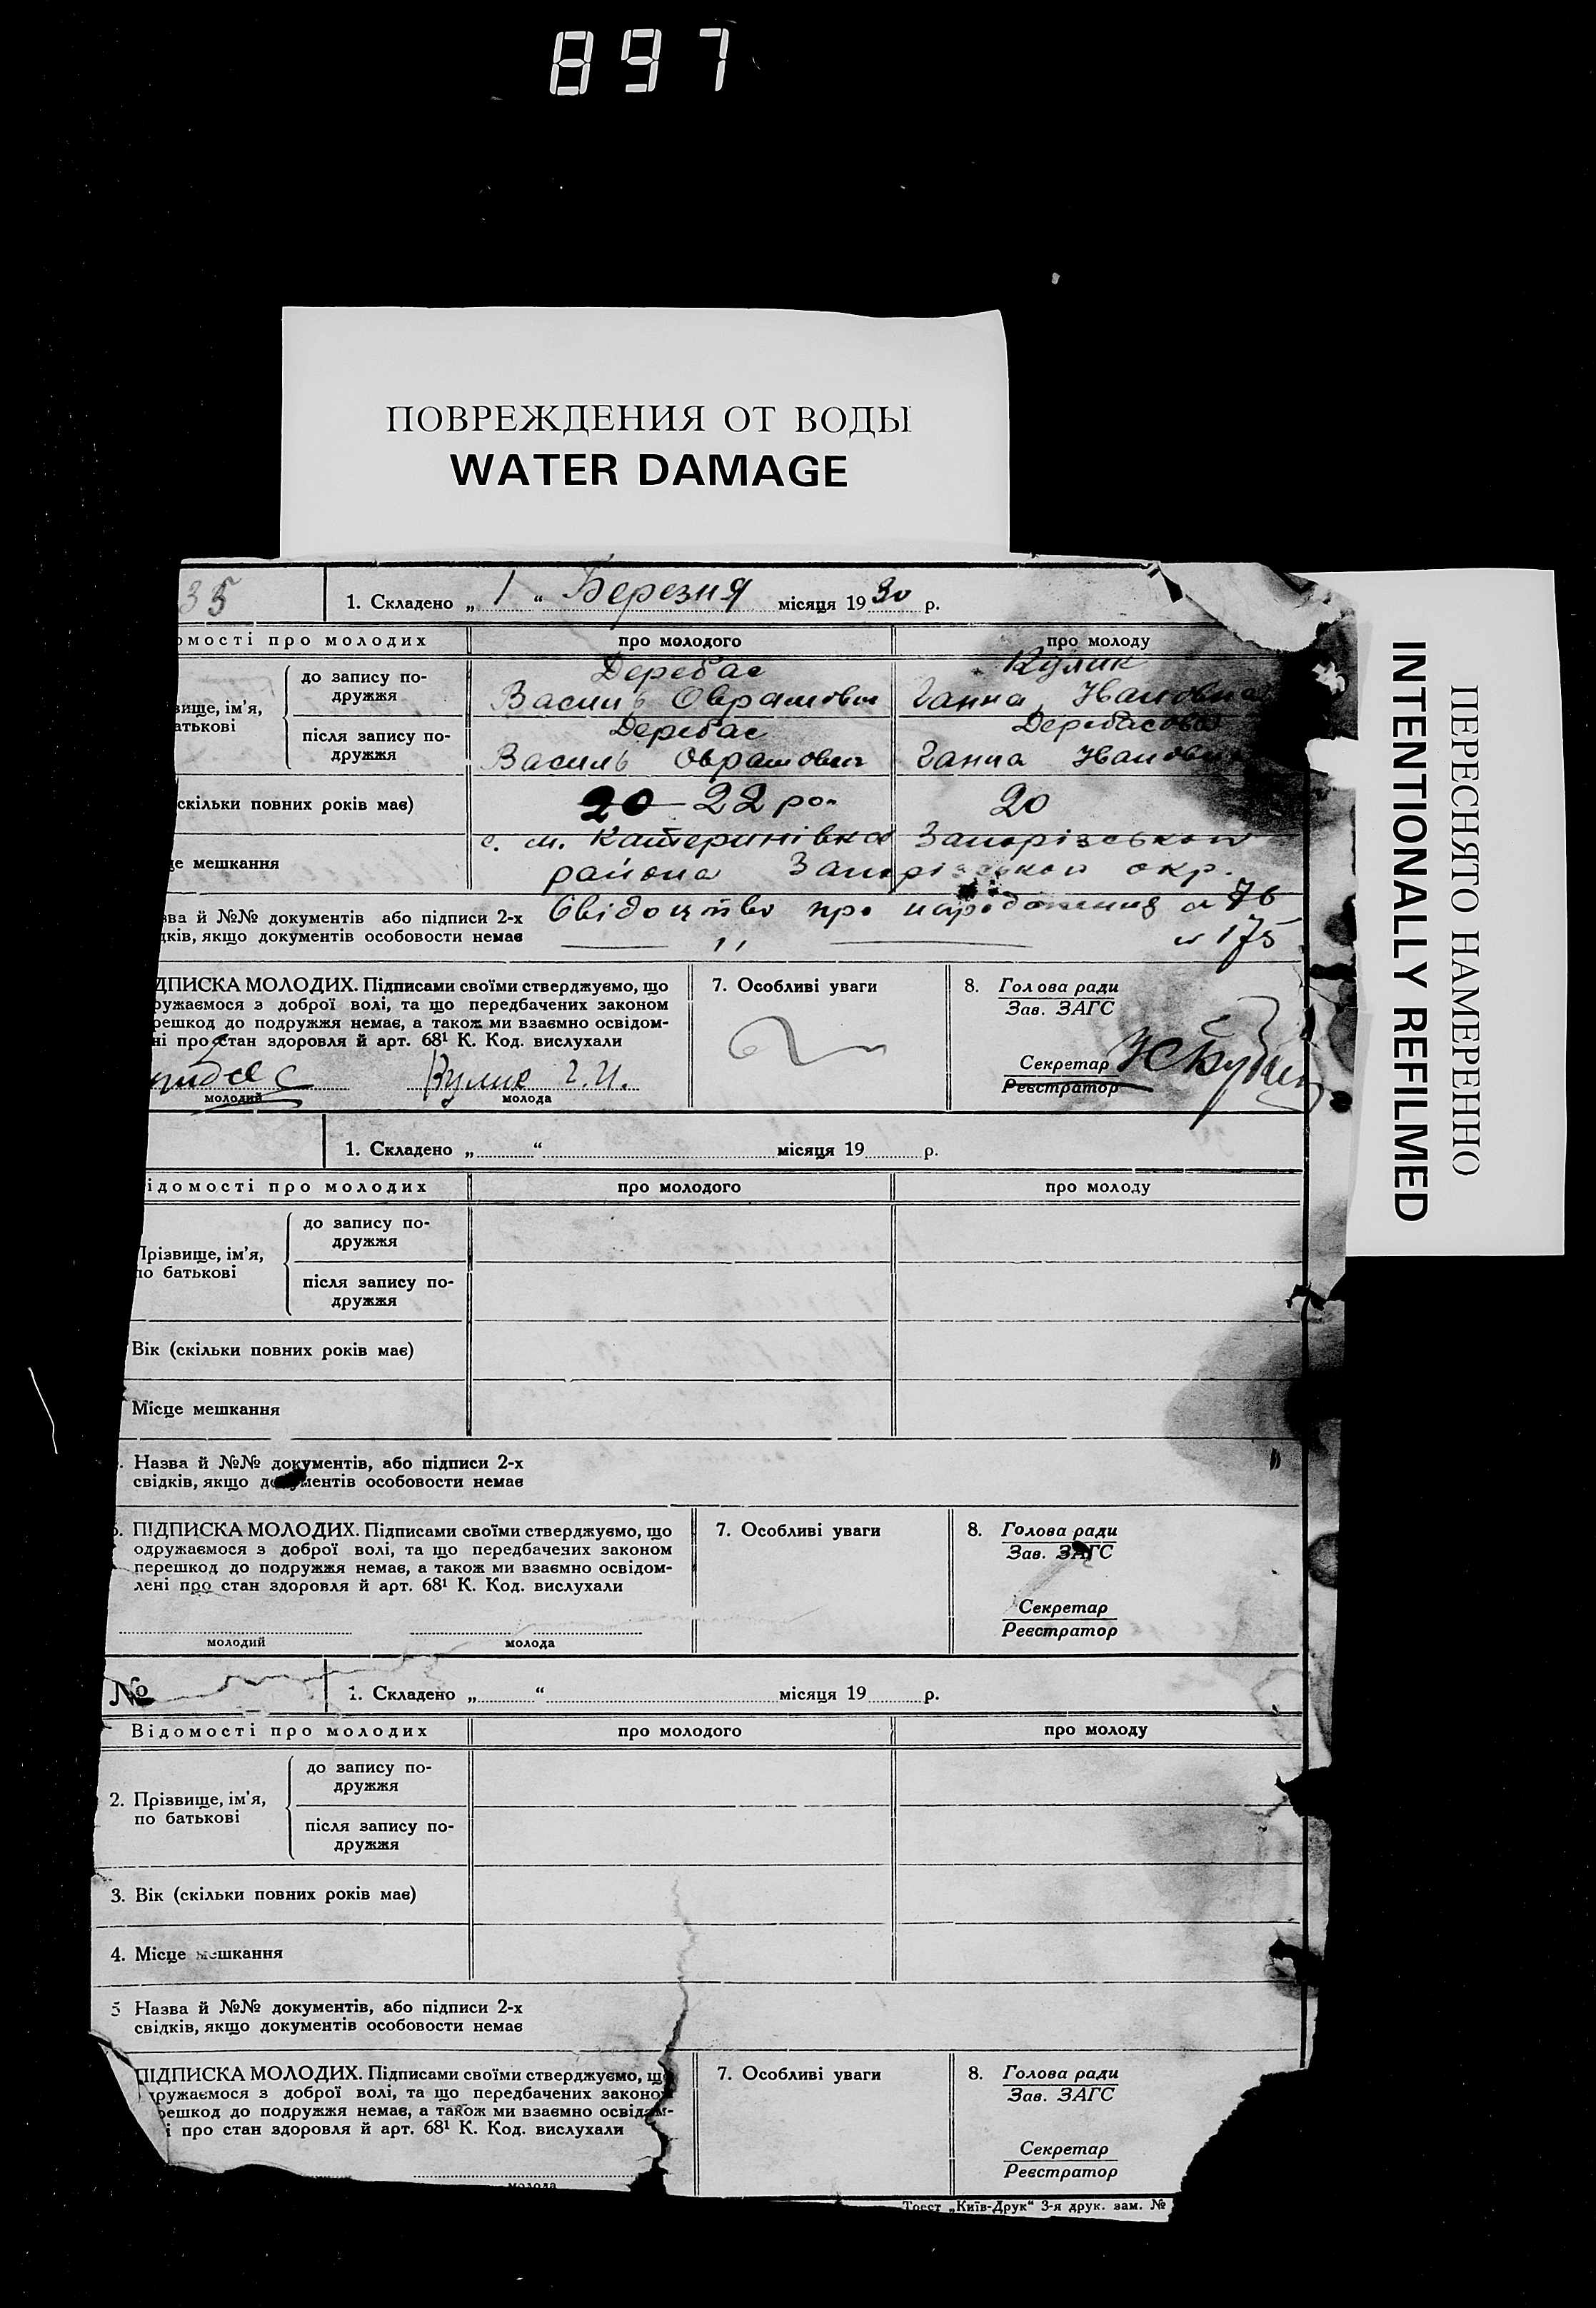 897
ПОВРЕЖДЕНИЯ ОТ ВОДЫ
WATER DAMAGE
ПЕРЕСНЯТО НАМЕРЕННО
INTENTIONALLY REFILMED
35
1. Складено „ 1 “ Березня місяця 1930 р.
омості про молодих про молодого про молоду
вище, ім’я, атькові
до запису по-
дружжя
Деребас Кулик
Василь Оврамович Ганна Івановна
після запису по-
дружжя
Деребас Деребасова
Василь Оврамович Ганна
скільки повних років має) 20 22 ро. 20
це мешкання
с. м. Катеринівка Запорізької
района Запорізької окр.
зва й №№ документів або підписи 2-х Свідоцтво про народження 76
дків, якщо документів особовости немає 〃 175
ДПИСКА МОЛОДИХ. Підписами своїми стверджуємо, що
ружаємося з доброї волі, та що передбачених законом
решкод до подружжя немає, а також ми взаємно освідом-
ні про стан здоровля й арт. 68¹ К. Код. вислухали
Кулик Г.И.
молодий молода
7. Особливі уваги
8. Голова ради
Зав. ЗАГС
Секретар
Реєстратор
1. Складено „ “ місяця 19 р.
ідомості про молодих про молодого про молоду
Прізвище, ім’я,
по батькові
до запису по-
дружжя
після запису по-
дружжя
Вік (скільки повних років має)
Місце мешкання
Назва й №№ документів, або підписи 2-х
свідків, якщо документів особовости немає
ПІДПИСКА МОЛОДИХ. Підписами своїми стверджуємо, що
одружаємося з доброї волі, та що передбачених законом
перешкод до подружжя немає, а також ми взаємно освідом-
лені про стан здоровля й арт. 68¹ К. Код. вислухали
молодий молода
7. Особливі уваги
8. Голова ради
Зав. ЗАГС
Секретар
Реєстратор
№
1. Складено „ “ місяця 19 р.
Відомості про молодих про молодого про молоду
2. Прізвище, ім’я,
по батькові
до запису по-
дружжя
після запису по-
дружжя
3. Вік (скільки повних років має)
4. Місце мешкання
5 Назва й №№ документів, або підписи 2-х
свідків, якщо документів особовости немає
ПІДПИСКА МОЛОДИХ. Підписами своїми стверджуємо, що
дружаємося з доброї волі, та що передбачених законом
решкод до подружжя немає, а також ми взаємно освідом-
і про стан здоровля й арт. 68¹ К. Код. вислухали
молода
7. Особливі уваги
8. Голова ради
Зав. ЗАГС
Секретар
Реєстратор
Трест „Київ-Друк“ 3-я друк. зам. №